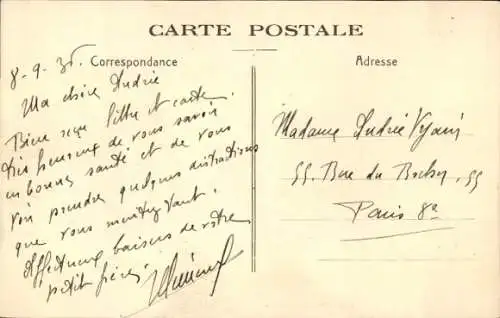 CARTE POSTALE
Correspondance
Adresse
8-9-36.
Ma chère Andrée
Bien reçu lettre et carte.
très heureux de vous savoir
en bonne santé et de vous
voir prendre quelques distractions
que vous méritez tant.
Affectueux baisers de votre
petit frère.
Madame Andrée
55. Rue du Rocher, 55
Paris 8e